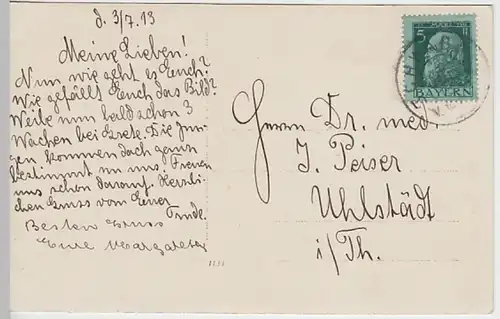 d. 3/7.13
Meine Lieben!
Nun wie geht es Euch?
Wie gefällt Euch das Bild?
Weile nun bald schon 3
Wochen bei Grete. Die Jun-
gen kommen doch ganz
bestimmt zu uns. Freuen
uns schon darauf. Herzli-
chen Gruss von Euer
Trude.
Besten Gruss
Eure Margarete
Herrn Dr. med.
J. Peiser
Uhlstädt
i/Th.
5
BAYERN